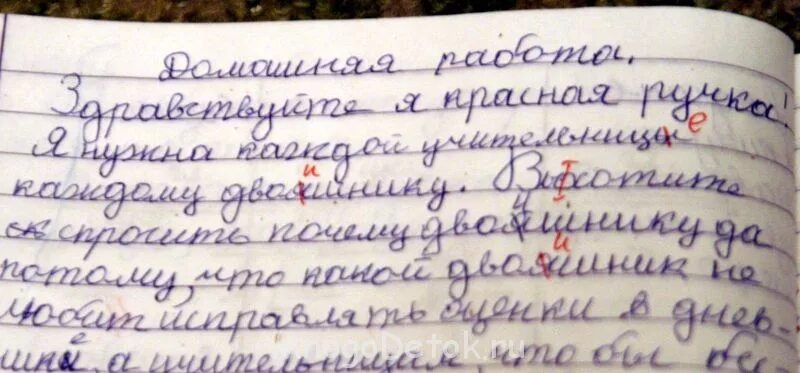 Домашняя работа.
Здравствуйте я красная ручка!
Я нужна каждой учительнице
каждому двоишнику. Вы хотите
спросить почему двоишнику да
потому, что какой двоишник не
любит исправлять оценки в днев-
нике, а учительницам, что бы